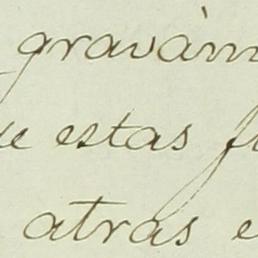 gravám
ue estas f
atras e